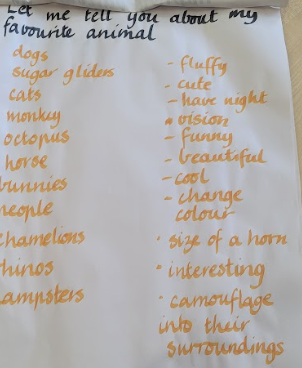 Let me tell you about my
favourite animal
dogs
sugar gliders
cats
monkey
octopus
horse
bunnies
people
chamelions
rhinos
hampsters
- fluffy
- cute
- have night
vision
- funny
- beautiful
- cool
- change
colour
· size of a horn
· interesting
· camouflage
into their
surroundings